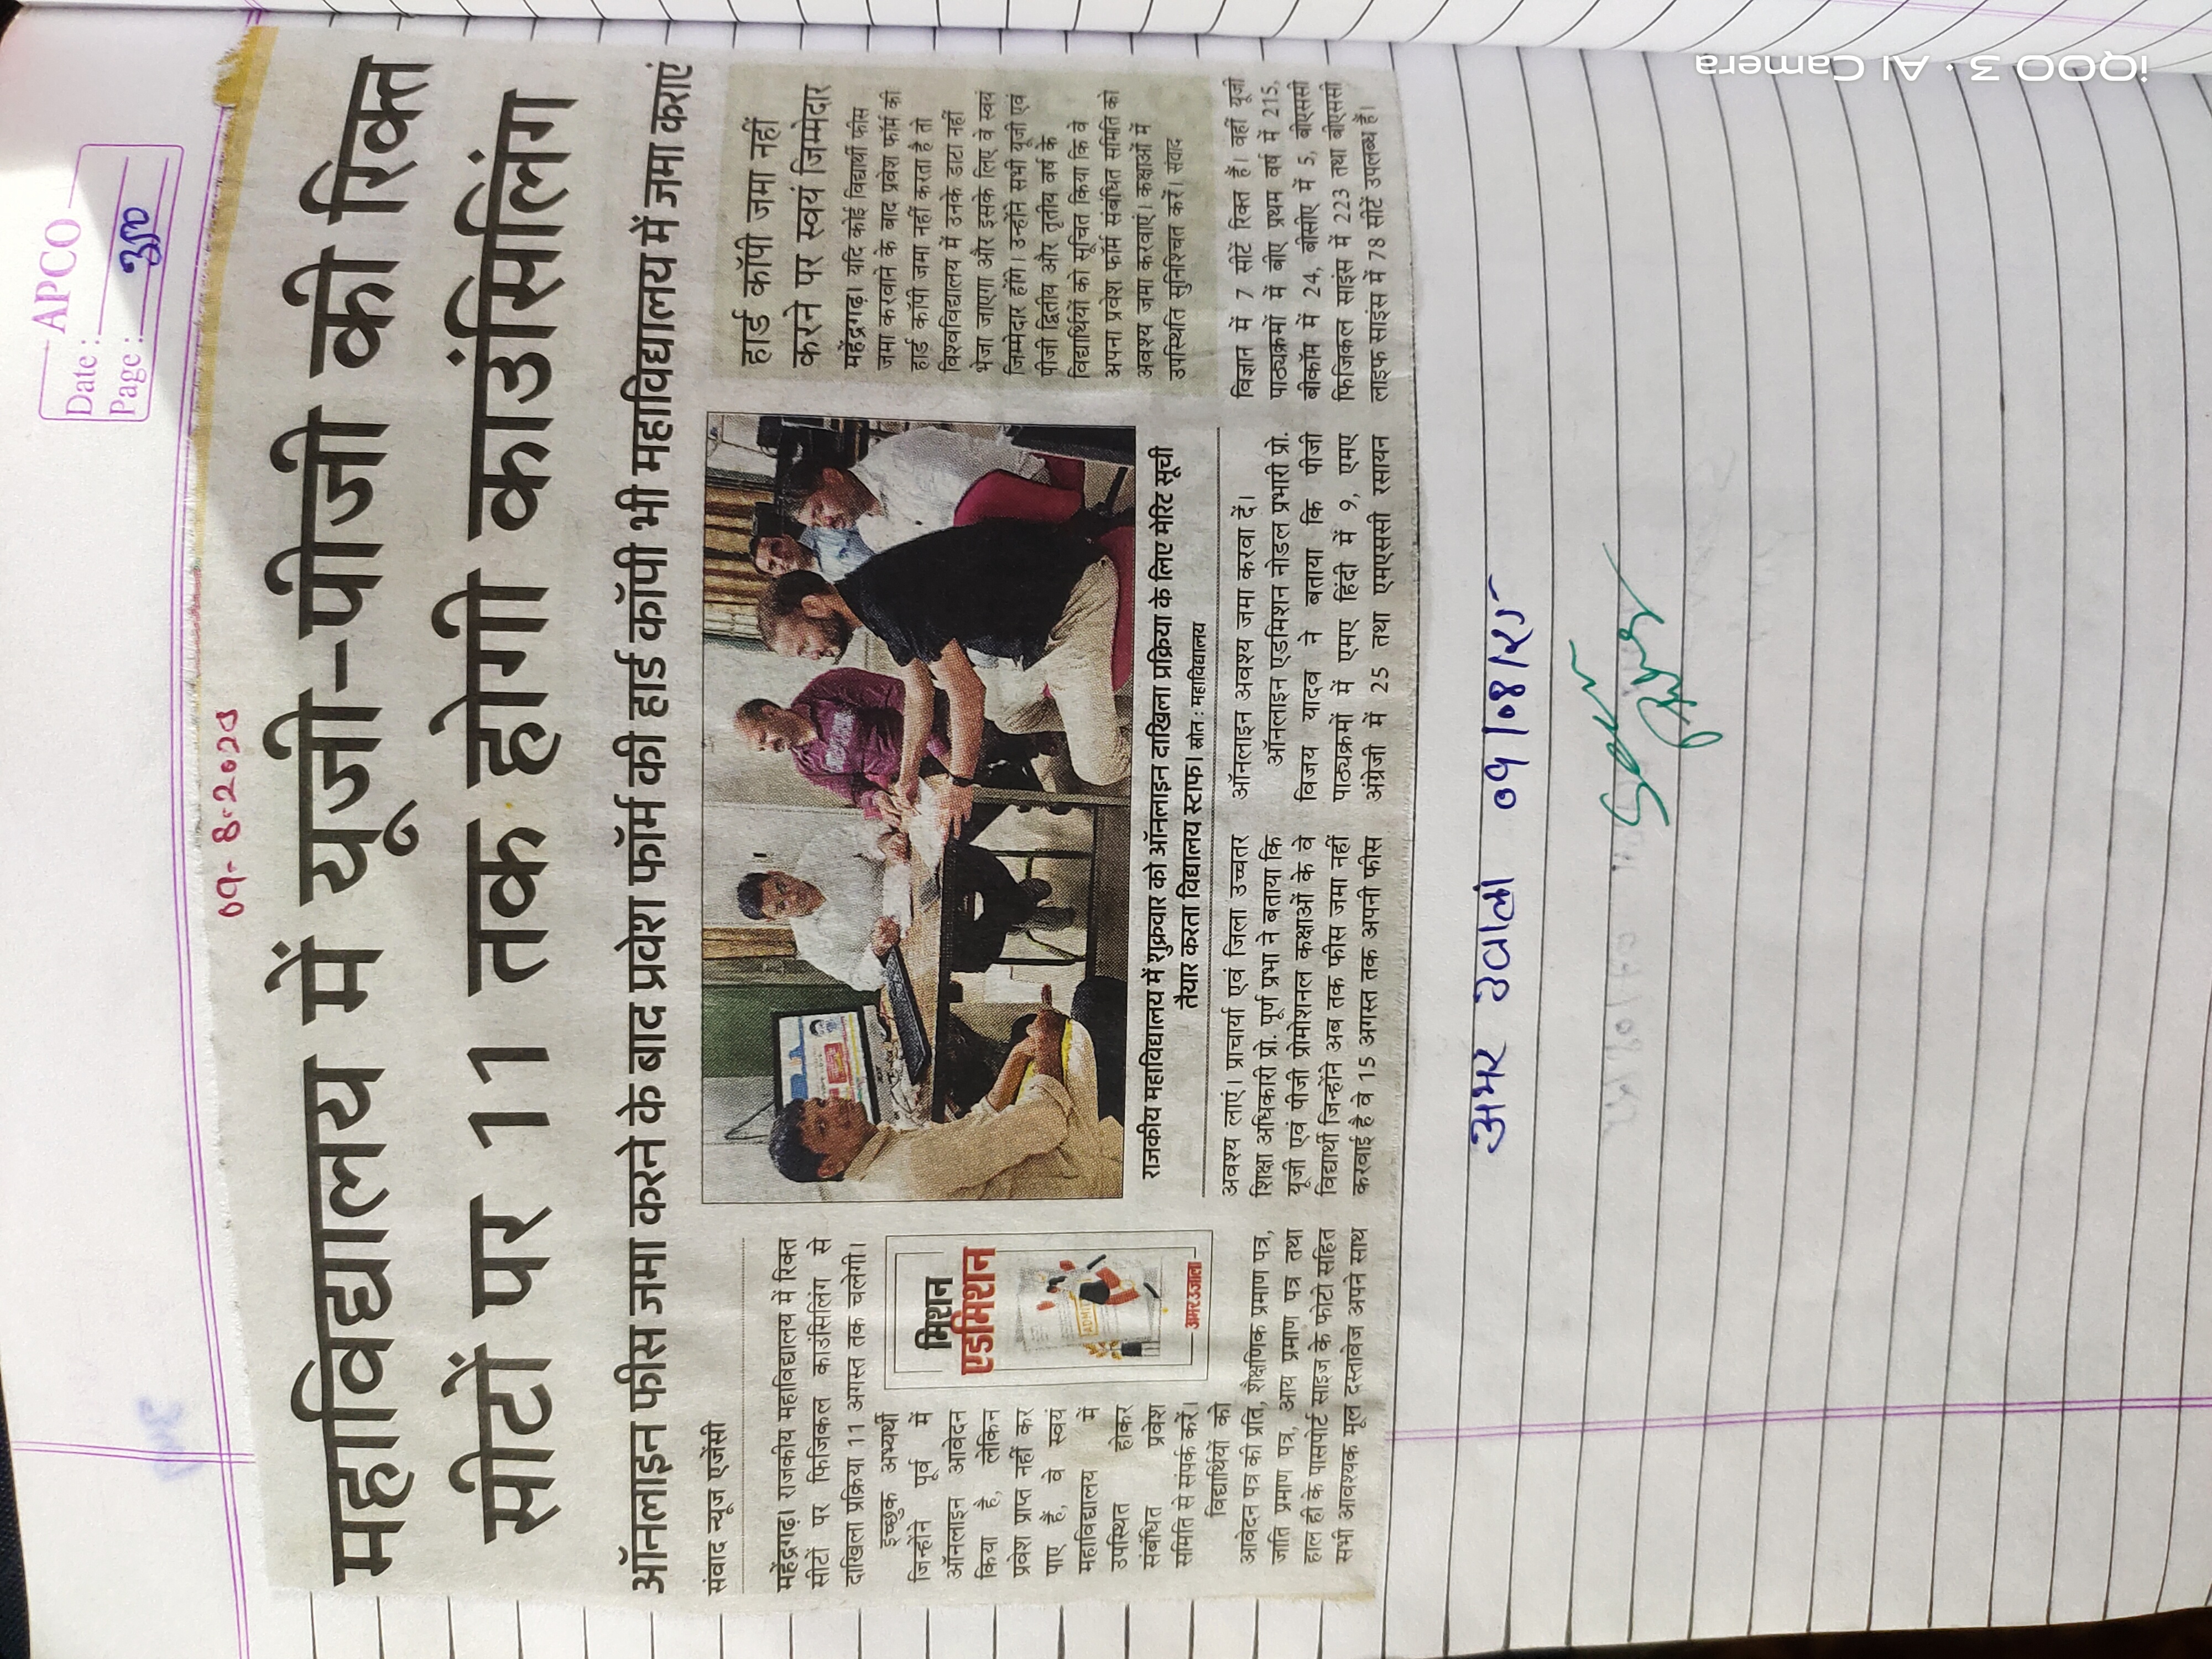 APCO
Date :
Page :
09-8-2025
महाविद्यालय में यूजी-पीजी की रिक्त
सीटों पर 11 तक होगी काउंसिलिंग
ऑनलाइन फीस जमा करने के बाद प्रवेश फॉर्म की हार्ड कॉपी भी महाविद्यालय में जमा कराएं
संवाद न्यूज एजेंसी
महेंद्रगढ़। राजकीय महाविद्यालय में रिक्त
सीटों पर फिजिकल काउंसिलिंग से
दाखिला प्रक्रिया 11 अगस्त तक चलेगी।
इच्छुक अभ्यर्थी
जिन्होंने पूर्व में
ऑनलाइन आवेदन
किया है, लेकिन
प्रवेश प्राप्त नहीं कर
पाए हैं, वे स्वयं
महाविद्यालय में
उपस्थित होकर
संबंधित प्रवेश
समिति से संपर्क करें।
विद्यार्थियों को
आवेदन पत्र की प्रति, शैक्षणिक प्रमाण पत्र,
जाति प्रमाण पत्र, आय प्रमाण पत्र तथा
हाल ही के पासपोर्ट साइज के फोटो सहित
सभी आवश्यक मूल दस्तावेज अपने साथ
मिशन
एडमिशन
ADMIT
अमर उजाला
राजकीय महाविद्यालय में शुक्रवार को ऑनलाइन दाखिला प्रक्रिया के लिए मेरिट सूची
तैयार करता विद्यालय स्टाफ। स्रोत : महाविद्यालय
अवश्य लाएं। प्राचार्या एवं जिला उच्चतर
शिक्षा अधिकारी प्रो. पूर्ण प्रभा ने बताया कि
यूजी एवं पीजी प्रोमोशनल कक्षाओं के वे
विद्यार्थी जिन्होंने अब तक फीस जमा नहीं
करवाई है वे 15 अगस्त तक अपनी फीस
ऑनलाइन अवश्य जमा करवा दें।
ऑनलाइन एडमिशन नोडल प्रभारी प्रो.
विजय यादव ने बताया कि पीजी
पाठ्यक्रमों में एमए हिंदी में 9, एमए
अंग्रेजी में 25 तथा एमएससी रसायन
हार्ड कॉपी जमा नहीं
करने पर स्वयं जिम्मेदार
महेंद्रगढ़। यदि कोई विद्यार्थी फीस
जमा करवाने के बाद प्रवेश फॉर्म की
हार्ड कॉपी जमा नहीं करता है तो
विश्वविद्यालय में उनके डाटा नहीं
भेजा जाएगा और इसके लिए वे स्वयं
जिम्मेदार होंगे। उन्होंने सभी यूजी एवं
पीजी द्वितीय और तृतीय वर्ष के
विद्यार्थियों को सूचित किया कि वे
अपना प्रवेश फॉर्म संबंधित समिति को
अवश्य जमा करवाएं। कक्षाओं में
उपस्थिति सुनिश्चित करें। संवाद
विज्ञान में 7 सीटें रिक्त हैं। वहीं यूजी
पाठ्यक्रमों में बीए प्रथम वर्ष में 215,
बीकॉम में 24, बीसीए में 5, बीएससी
फिजिकल साइंस में 223 तथा बीएससी
लाइफ साइंस में 78 सीटें उपलब्ध हैं।
अमर उजाला 09/08/25
iQOO 3 · AI Camera